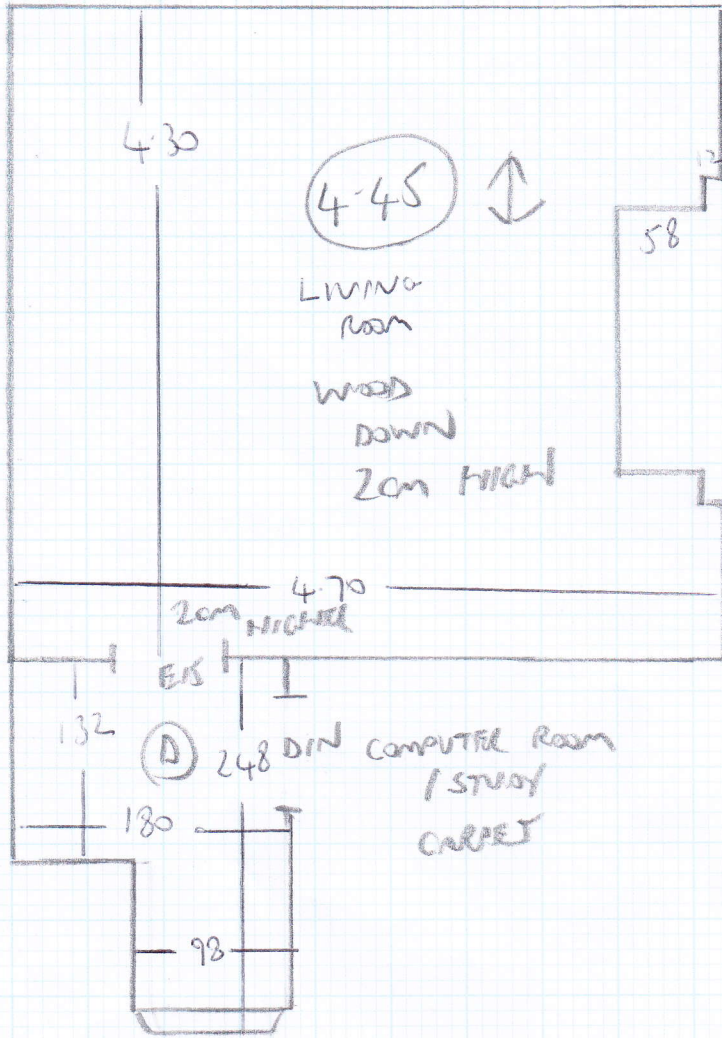 4.30
12
4.45
58
LIVING
ROOM
WOOD
DOWN
2cm HIGH
4.70
2cm HIGHER
E15
132
D
248
DIN COMPUTER ROOM
/ STUDY
CARPET
180
98